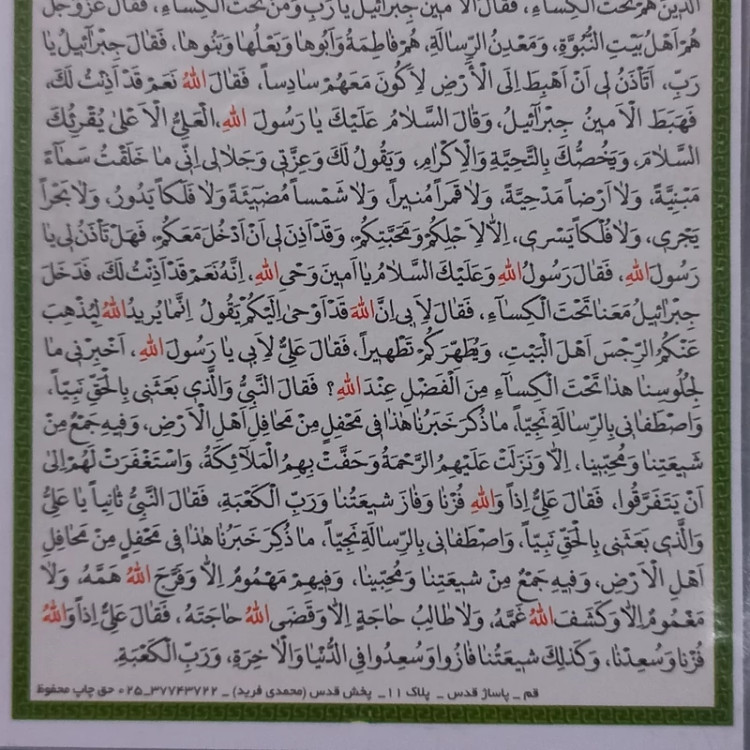 الَّذينَ هُمْ تَحْتَ الْكِسآءِ، فَقالَ الْاَمينُ جِبْرآئيلُ يا رَبِّ وَمَنْ تَحْتَ الْكِسآءِ، فَقالَ عَزَّوَجَلَّ
هُمْ اَهْلُ بَيْتِ النُّبُوَّةِ، وَمَعْدِنُ الرِّسالَةِ، هُمْ فاطِمَةُ وَاَبُوها وَبَعْلُها وَبَنُوها، فَقالَ جِبْرآئيلُ يا
رَبِّ، اَتَأْذَنُ لى اَنْ اَهْبِطَ اِلَى الْأَرْضِ لِاَكُونَ مَعَهُمْ سادِساً، فَقالَ اللهُ نَعَمْ قَدْ اَذِنْتُ لَكَ،
فَهَبَطَ الْاَمينُ جِبْرآئيلُ، وَقالَ السَّلامُ عَلَيْكَ يا رَسُولَ اللهِ، الْعَلِىُّ الْاَعْلىٰ يُقْرِئُكَ
السَّلامَ، وَيَخُصُّكَ بِالتَّحِيَّةِ وَالْاِكْرامِ، وَيَقُولُ لَكَ وَعِزَّتى وَجَلالى اِنّى ما خَلَقْتُ سَمآءً
مَبْنِيَّةً، وَلا اَرْضاً مَدْحِيَّةً، وَلا قَمَراً مُنيراً، وَلا شَمْساً مُضيٓئَةً وَلا فَلَكاً يَدُورُ، وَلا بَحْراً
يَجْرى، وَلا فُلْكاً يَسْرى، اِلاّ لِاَجْلِكُمْ وَمَحَبَّتِكُمْ، وَقَدْ اَذِنَ لى اَنْ اَدْخُلَ مَعَكُمْ، فَهَلْ تَأْذَنُ لى يا
رَسُولَ اللهِ، فَقالَ رَسُولُ اللهِ وَعَلَيْكَ السَّلامُ يا اَمينَ وَحْىِ اللهِ، اِنَّهُ نَعَمْ قَدْ اَذِنْتُ لَكَ، فَدَخَلَ
جِبْرآئيلُ مَعَنا تَحْتَ الْكِسآءِ، فَقالَ لِاَبى اِنَّ اللهَ قَدْ اَوْحىٰ اِلَيْكُمْ يَقُولُ اِنَّما يُريدُ اللهُ لِيُذْهِبَ
عَنْكُمُ الرِّجْسَ اَهْلَ الْبَيْتِ، وَيُطَهِّرَكُمْ تَطْهيراً، فَقالَ عَلِىٌّ لِاَبى يا رَسُولَ اللهِ، اَخْبِرْنى ما
لِجُلُوسِنا هٰذا تَحْتَ الْكِسآءِ مِنَ الْفَضْلِ عِنْدَ اللهِ؟ فَقالَ النَّبِىُّ وَالَّذى بَعَثَنى بِالْحَقِّ نَبِيّاً،
وَاصْطَفانى بِالرِّسالَةِ نَجِيّاً، ما ذُكِرَ خَبَرُنا هٰذا فى مَحْفِلٍ مِنْ مَحافِلِ اَهْلِ الْاَرْضِ، وَفيهِ جَمْعٌ مِنْ
شيعَتِنا وَمُحِبّينا، اِلاّ وَنَزَلَتْ عَلَيْهِمُ الرَّحْمَةُ وَحَفَّتْ بِهِمُ الْمَلآئِكَةُ، وَاسْتَغْفَرَتْ لَهُمْ اِلىٰ
اَنْ يَتَفَرَّقُوا، فَقالَ عَلِىٌّ اِذاً وَاللهِ فُزْنا وَفازَ شيعَتُنا وَرَبِّ الْكَعْبَةِ، فَقالَ النَّبِىُّ ثانِياً يا عَلِىُّ
وَالَّذى بَعَثَنى بِالْحَقِّ نَبِيّاً، وَاصْطَفانى بِالرِّسالَةِ نَجِيّاً، ما ذُكِرَ خَبَرُنا هٰذا فى مَحْفِلٍ مِنْ مَحافِلِ
اَهْلِ الْاَرْضِ، وَفيهِ جَمْعٌ مِنْ شيعَتِنا وَمُحِبّينا، وَفيهِمْ مَهْمُومٌ اِلاّ وَفَرَّجَ اللهُ هَمَّهُ، وَلا
مَغْمُومٌ اِلاّ وَكَشَفَ اللهُ غَمَّهُ، وَلا طالِبُ حاجَةٍ اِلاّ وَقَضَى اللهُ حاجَتَهُ، فَقالَ عَلِىٌّ اِذاً وَاللهِ
فُزْنا وَسُعِدْنا، وَكَذٰلِكَ شيعَتُنا فازُوا وَسُعِدُوا فِى الدُّنْيا وَالْاٰخِرَةِ، وَرَبِّ الْكَعْبَةِ.
قم _ پاساژ قدس _ پلاک ۱۱_ پخش قدس (محمدی فرید) _ ۳۷۷۴۳۷۲۲_۰۲۵ حق چاپ محفوظ